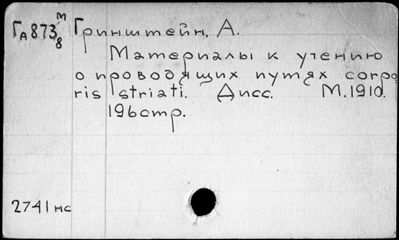 Га873 м/8 Гринштейн, А.
Материалы к учению
о проводящих путях corpo
ris striati. Дисс. М.1910.
196стр.
2741 нс